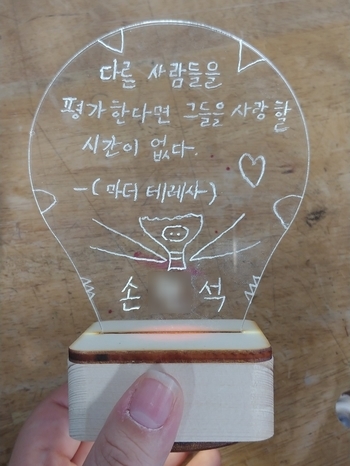 다른 사람들을
평가한다면 그들을 사랑할
시간이 없다.
-(마더 테레사)
손 석